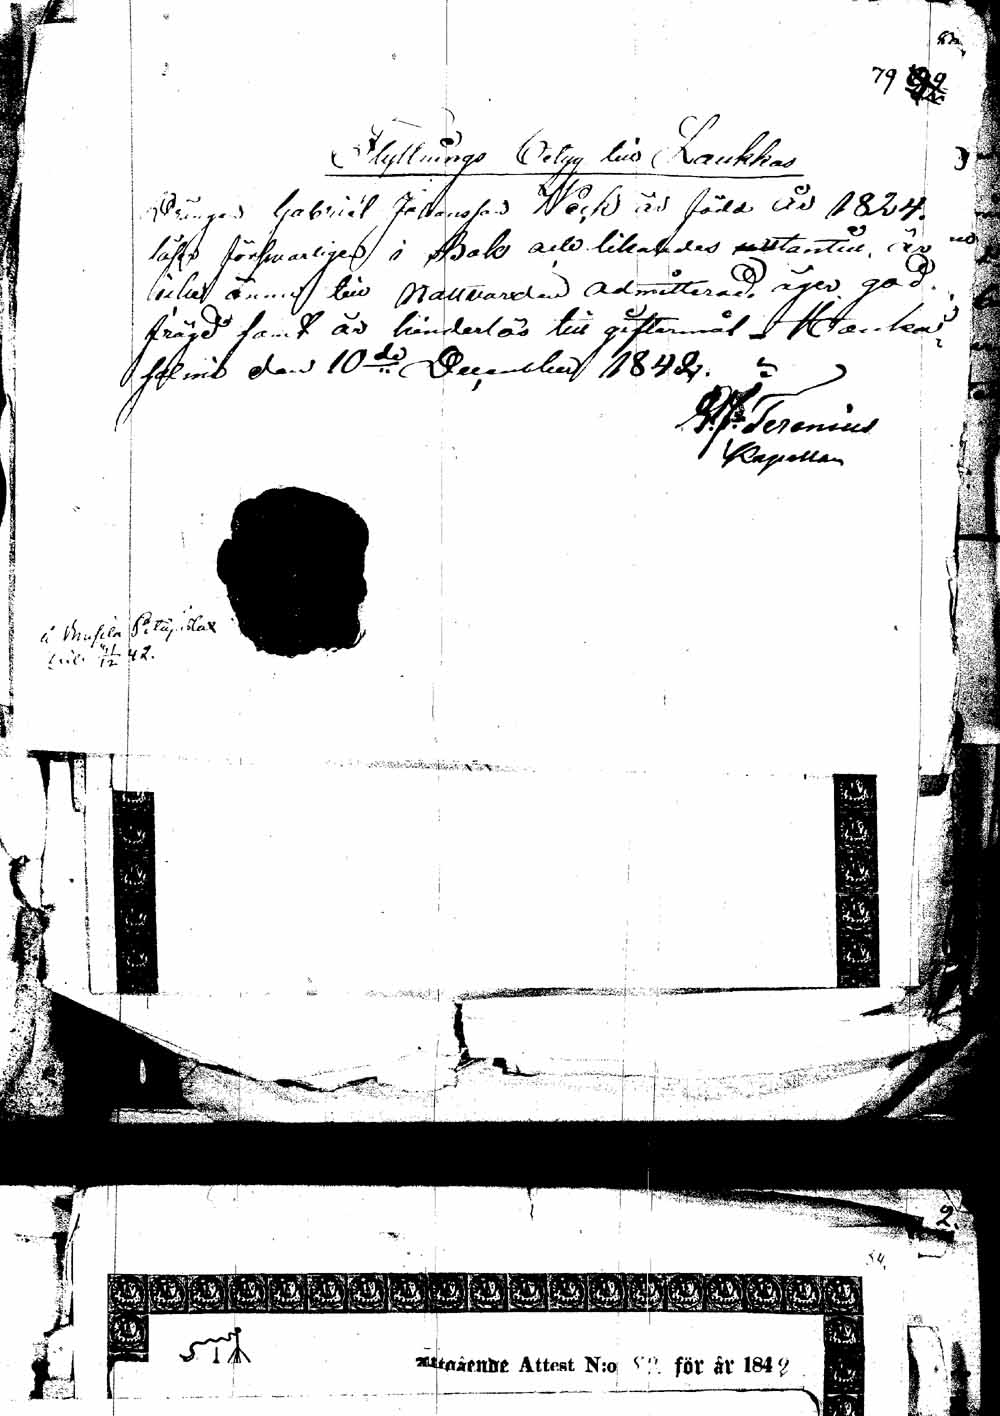 79
Flyttnings Betyg till Laukkas
Drängen Gabriel Johansson är född år 1824.
läser försvarligen i Bok och likaledes utantill, är
icke ännu till Nattvarden admitterad, äger god
frägd samt är hinderlös till giftermål. Hanka-
salmis den 10de December 1842.
Feronius
Kapellan
å Pitäjistä
12 42.
2.
54.
Utgående Attest N:o 52 för år 1842